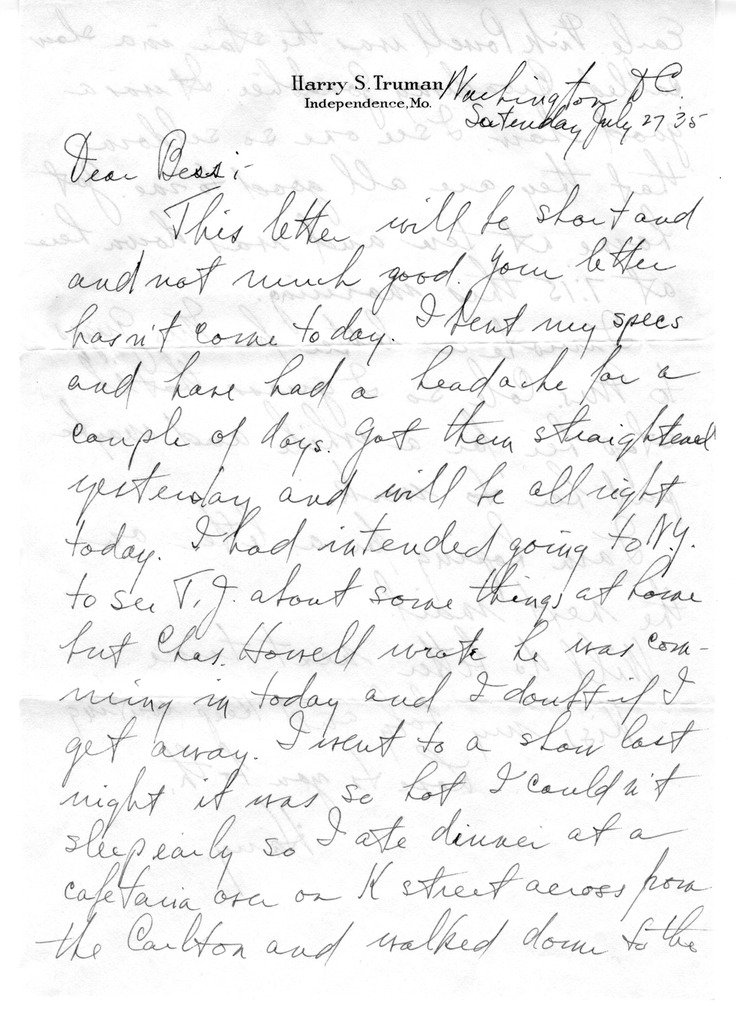 Harry S. Truman
Independence, Mo.
Washington D.C.
Saturday July 27 35
Dear Bess:-
This letter will be short and
and not much good. Your letter
hasn't come today. I bent my specs
and have had a headache for a
couple of days. Got them straightened
yesterday and will be all right
today. I had intended going to N.Y.
to see T.J. about some things at home
but Chas. Howell wrote he was com-
ming in today and I doubt if I
get away. I went to a show last
night it was so hot I couldn't
sleep early so I ate dinner at a
cafetaria over on K street across from
the Carlton and walked down to the